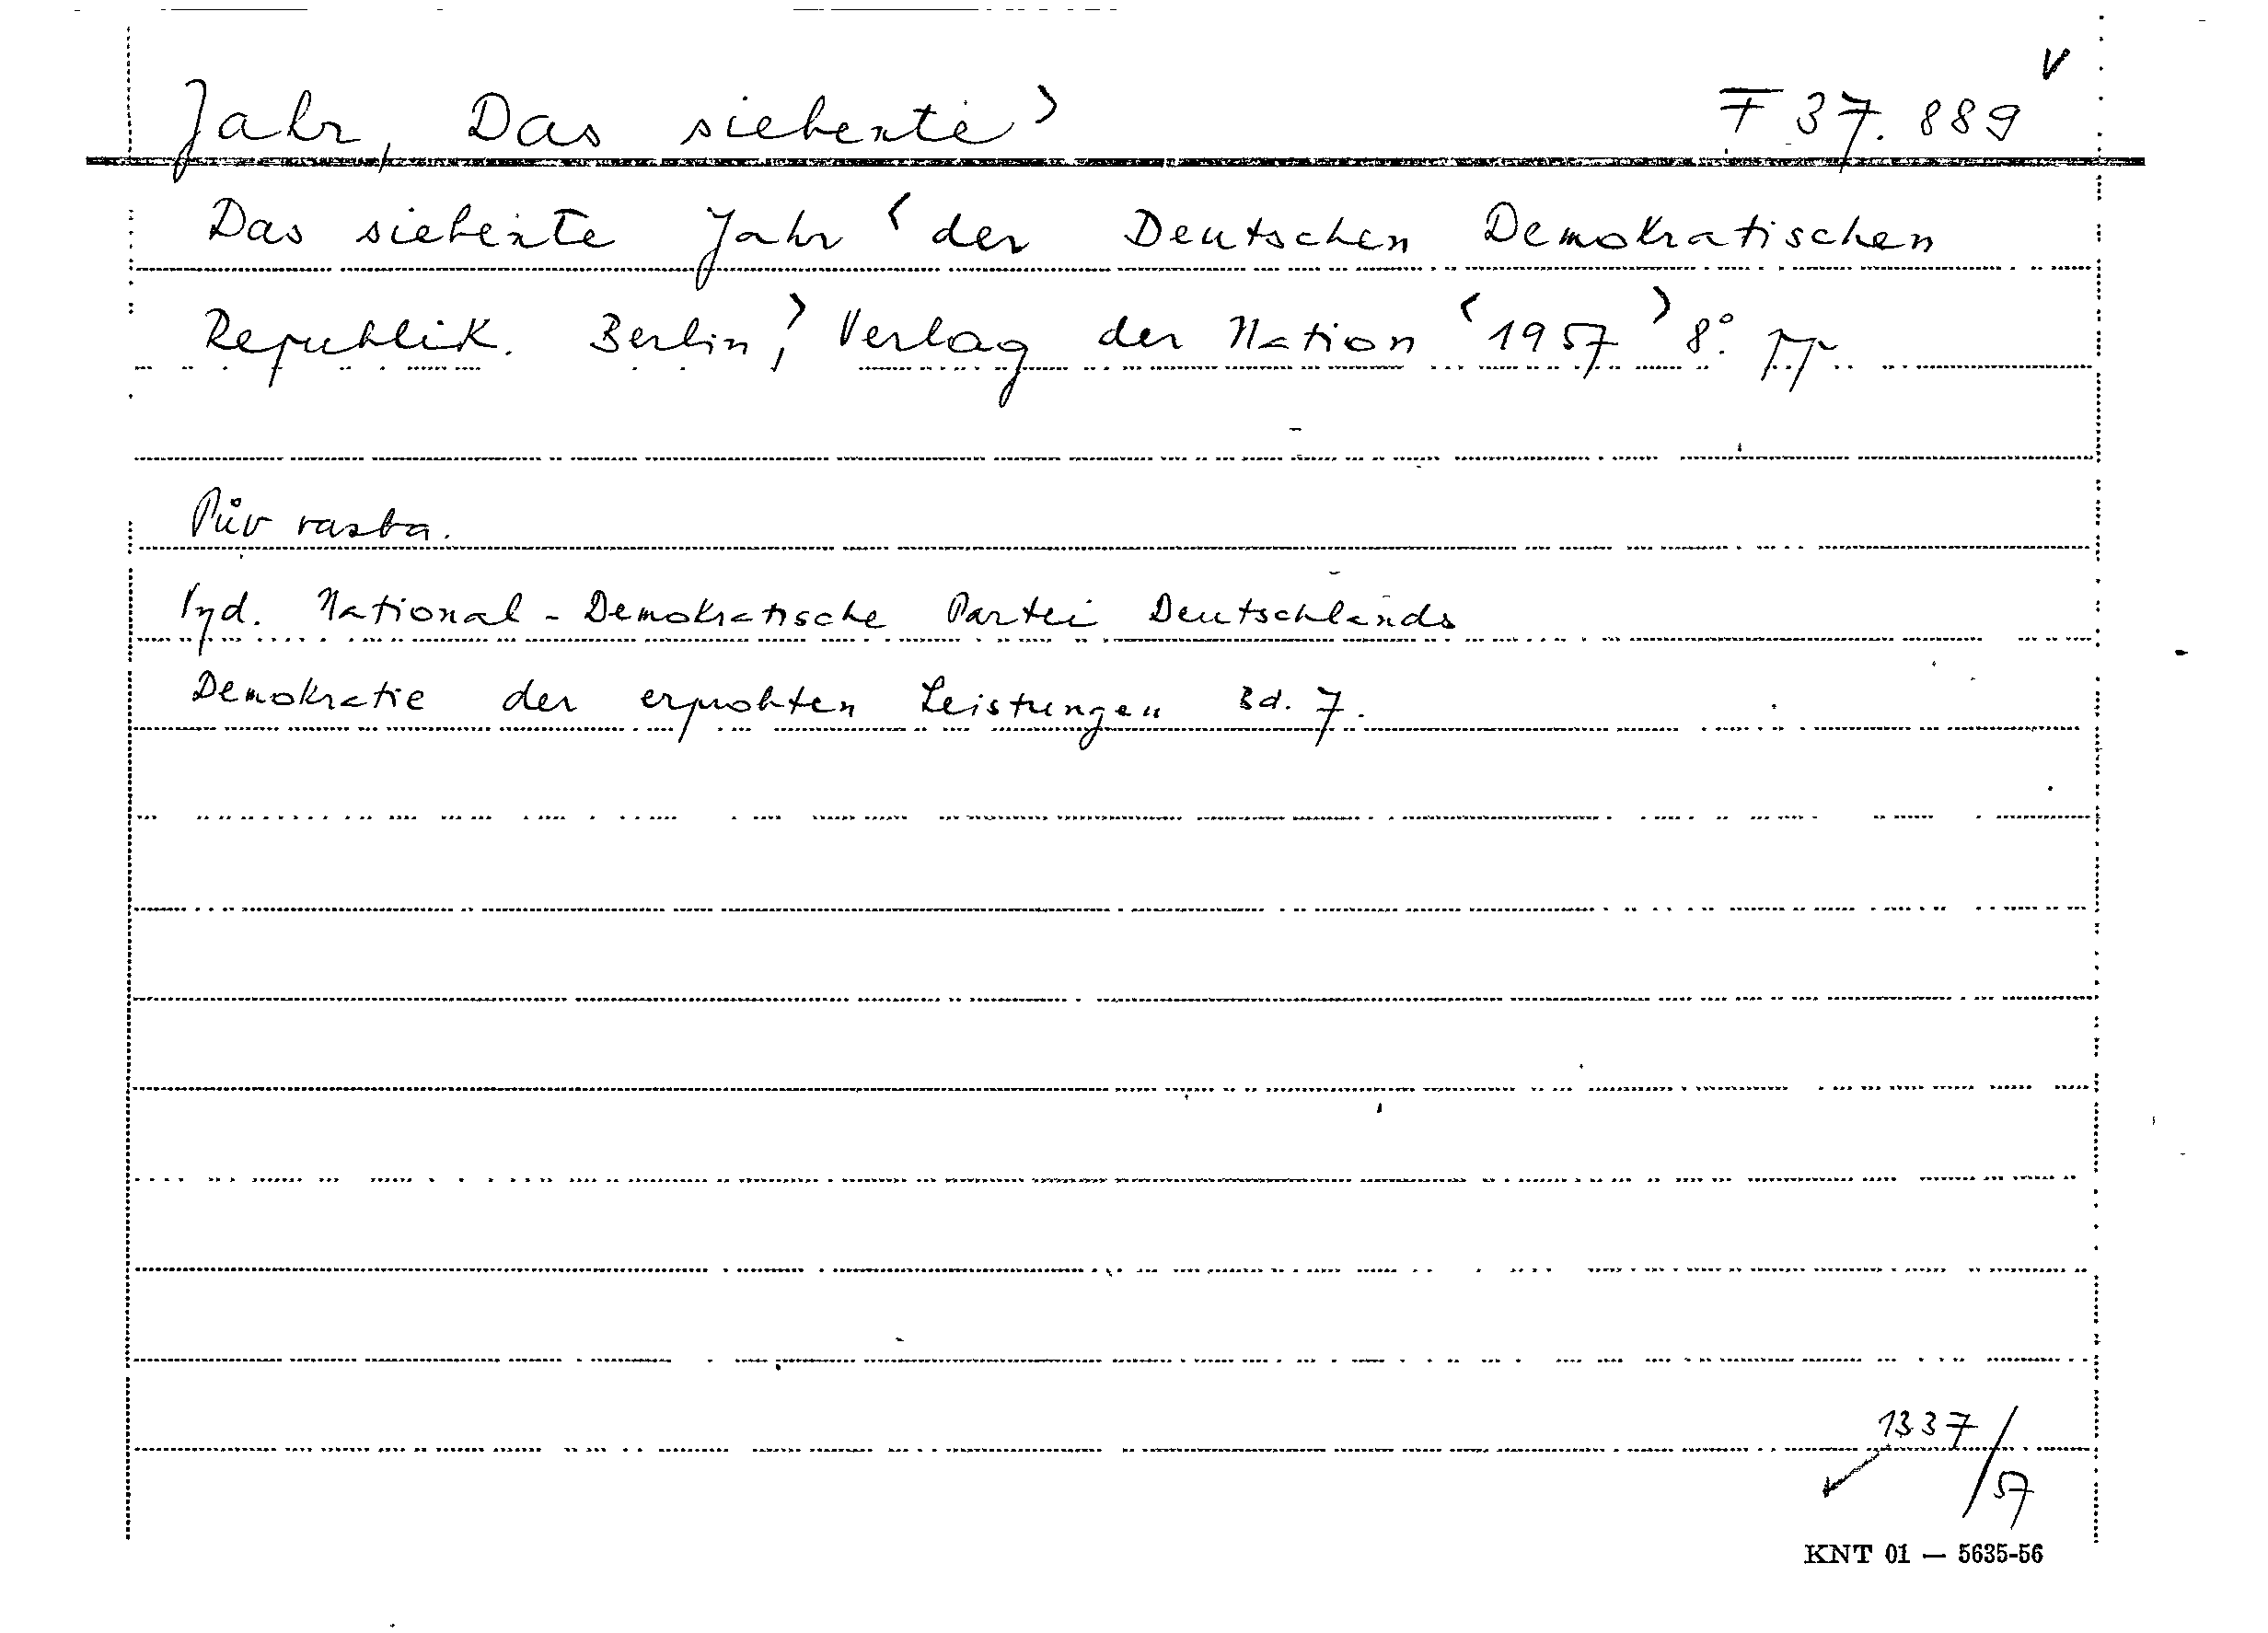 Jahr, Das siebente> F 37.889 v
Das siebente Jahr <der Deutschen Demokratischen
Republik. Berlin,> Verlag der Nation <1957> 8°.
Pův vazba.
Vyd. National-Demokratische Partei Deutschlands
Demokratie der erprobten Leistungen Bd. 7.
1337/57
KNT 01 — 5635-56